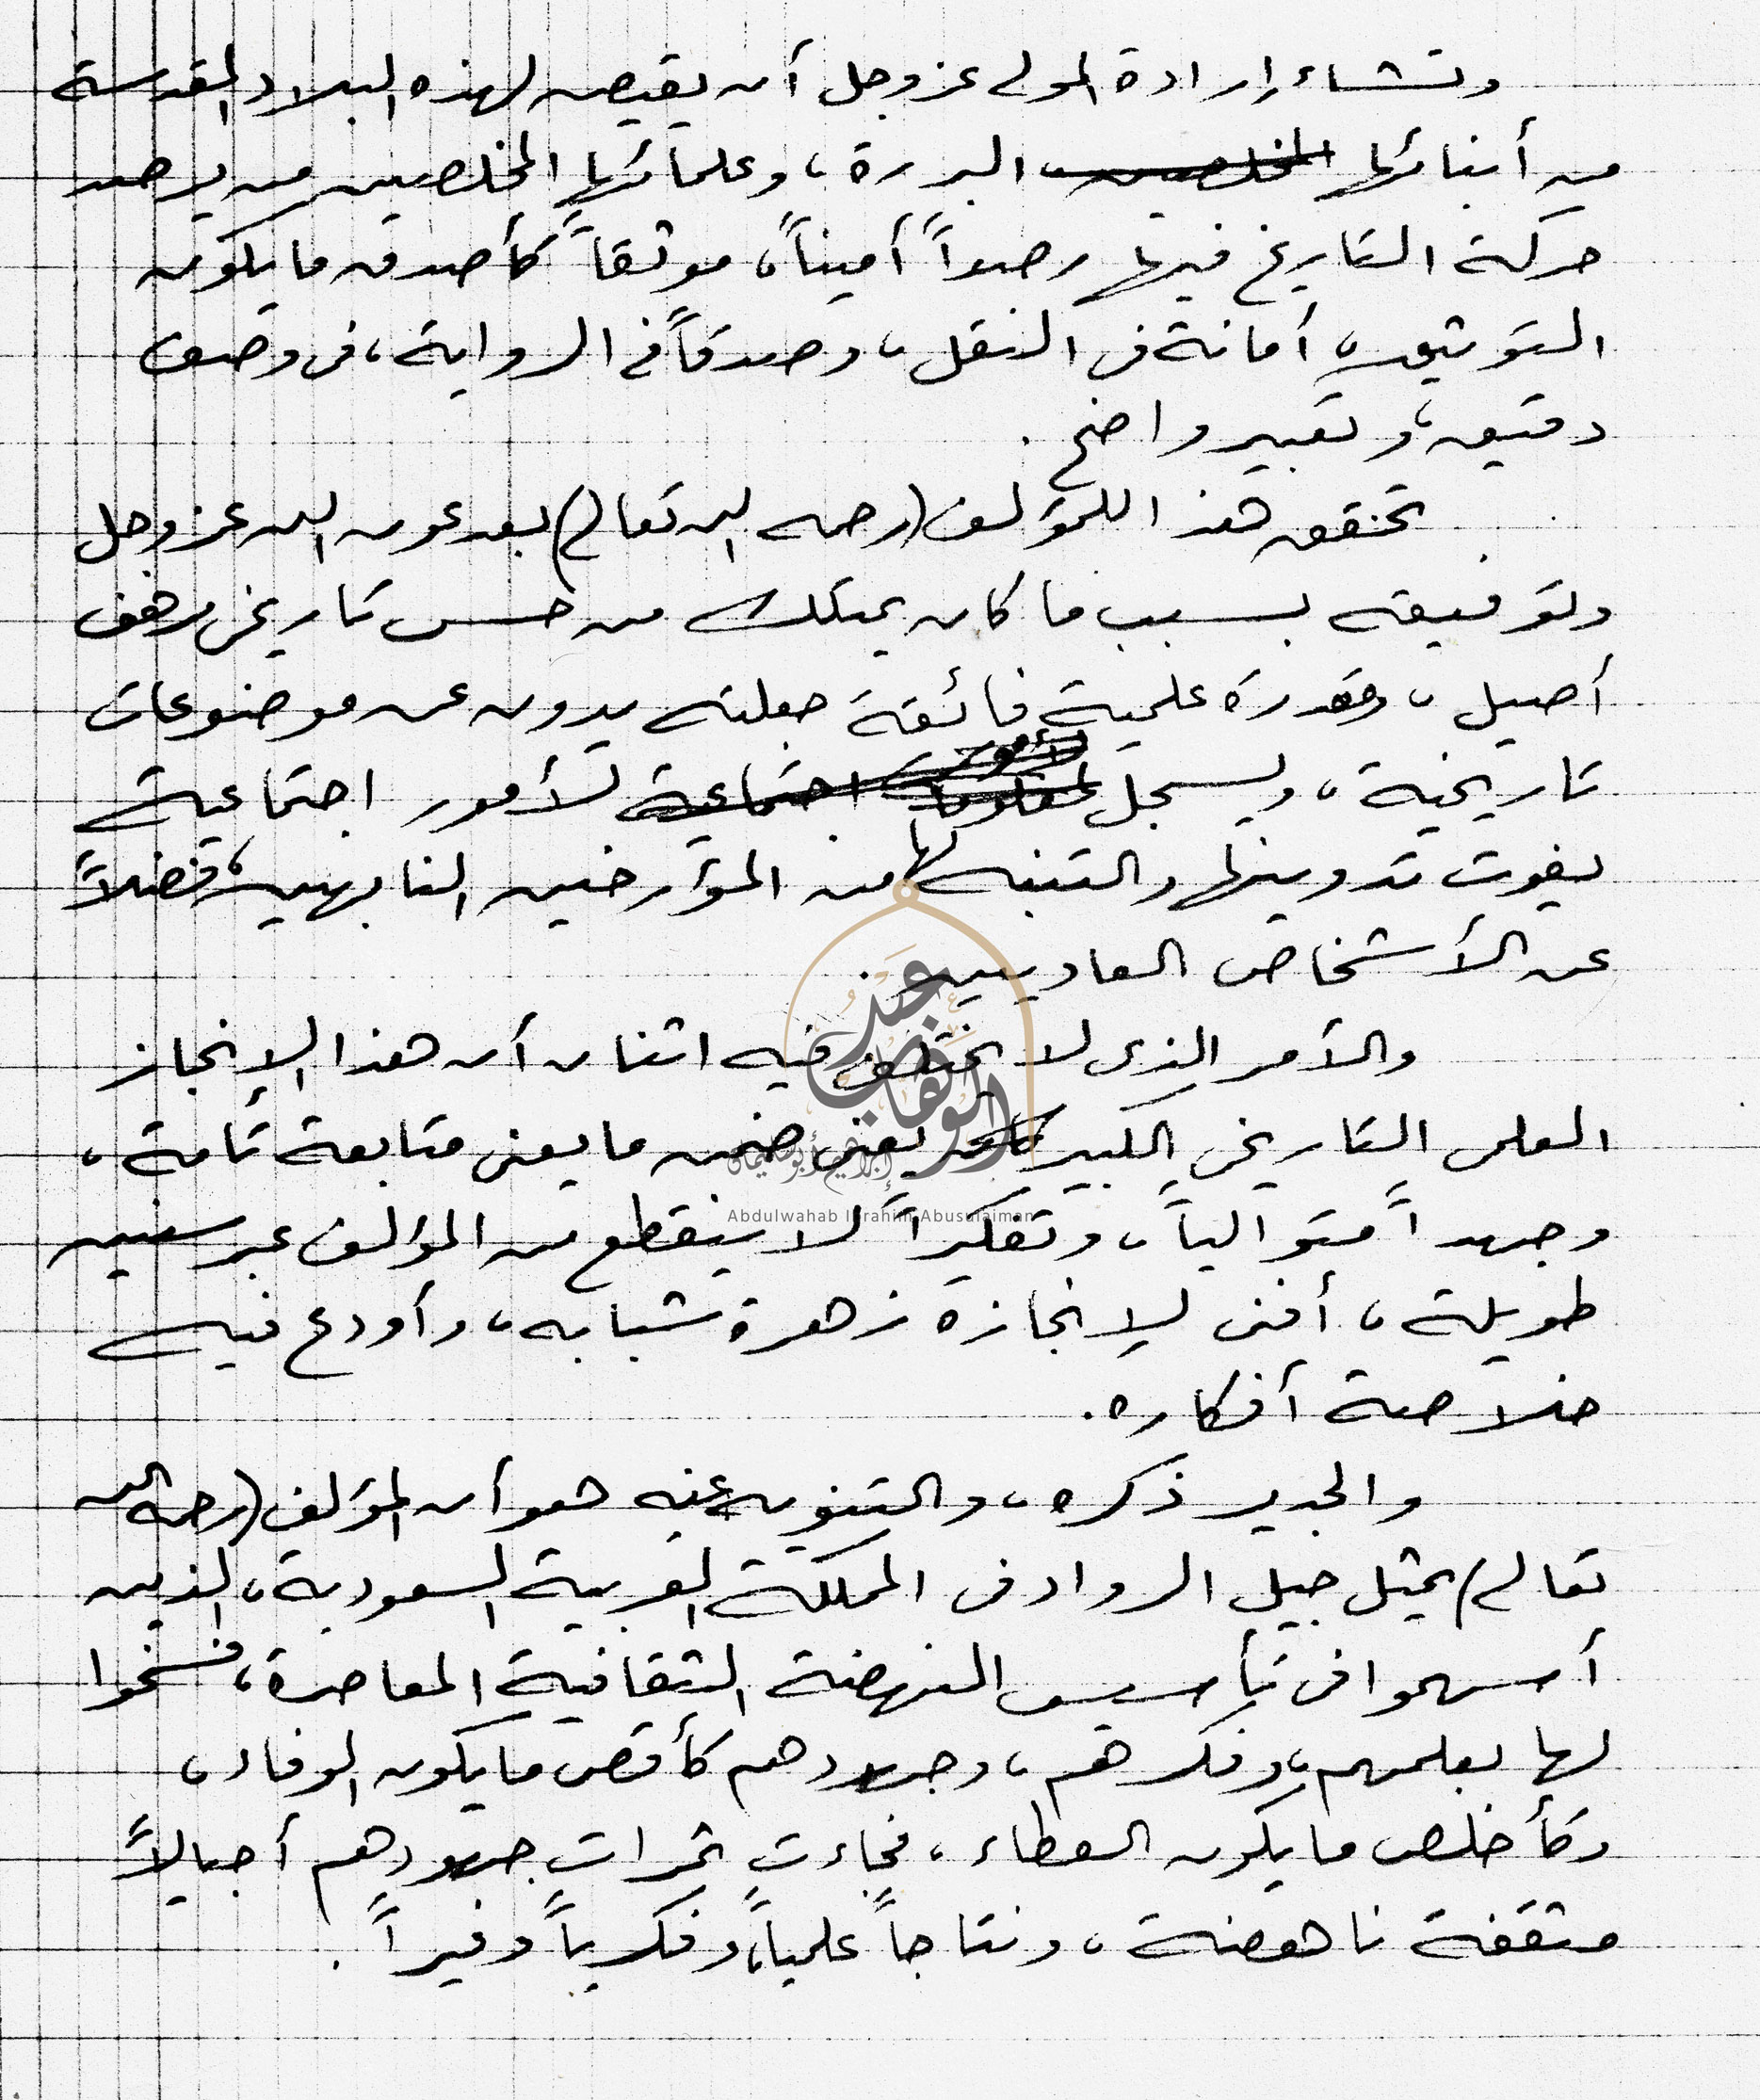 وتشاء إرادة المولى عز وجل أن يقيض لهذه البلاد المقدسة
من أبنائها المخلصين البررة، وعلمائها المخلصين من يرصد
حركة التاريخ فيها رصداً أميناً، موثقاً كأصدق ما يكون
التوثيق، أمانة فى النقل، وصدقاً فى الرواية، فى وصف
دقيق، وتعبير واضح.
تحقق هذا للمؤلف (رحمه الله تعالى) بعد عون الله عز وجل
وتوفيقه بسبب ما كان يمتلك من حس تاريخى مرهف
أصيل، وقدرة علمية فائقة جعلته يدون عن موضوعات
تاريخية، ويسجل لمعلومات اجتماعية لأمور اجتماعية
يفوت تدوينها والتنبه لها من المؤرخين النابهين، فضلاً
عن الأشخاص العاديين.
والأمر الذى لا يختلف فيه اثنان أن هذا الإنجاز
العلمى التاريخى الكبير يعنى ضمن ما يعنى متابعة تامة،
وجهداً متوالياً، وتفكيراً لا ينقطع من المؤلف عبر سنين
طويلة، أفنى لإنجازه زهرة شبابه، وأودع فيه
خلاصة أفكاره.
والجدير ذكره، والتنويه عنه هو أن المؤلف (رحمه الله
تعالى) يمثل جيل الرواد فى المملكة العربية السعودية، الذين
أسهموا فى تأسيس النهضة الثقافية المعاصرة، فسخوا
لها بعلمهم، وفكرهم، وجهودهم كأقصى ما يكون الوفاء،
وكأخلص ما يكون العطاء، فجاءت ثمرات جهودهم أجيالاً
مثقفة ناهضة، ونتاجاً علمياً، وفكرياً وفيراً.
عبد الوهاب
إبراهيم أبو سليمان
Abdulwahab Ibrahim Abusulaiman